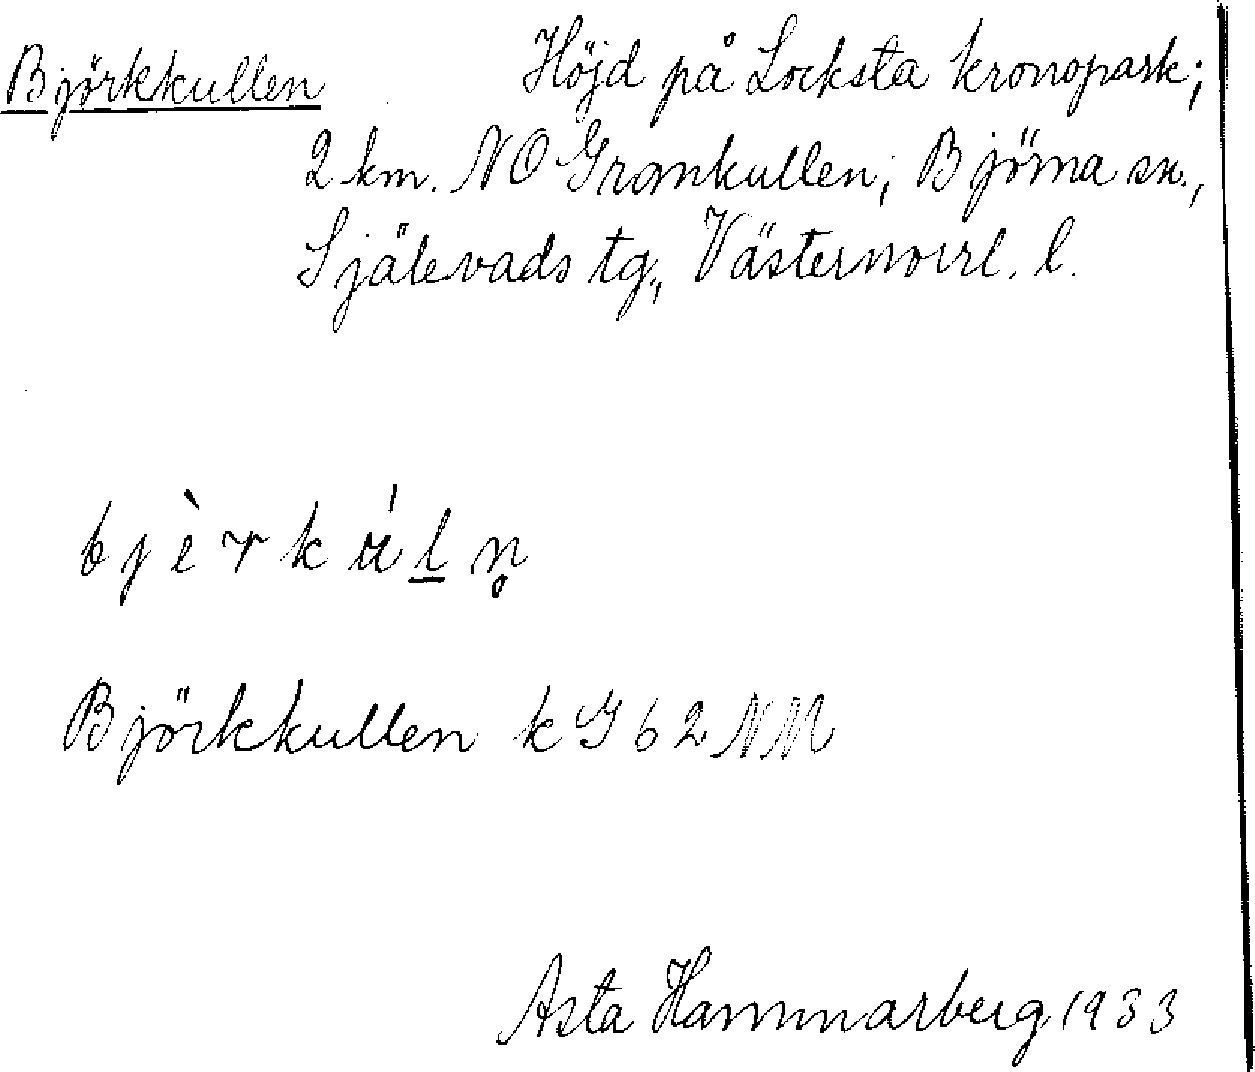 Björkkullen Höjd på Locksta kronopark;
2 km. NO Grankullen; Björna sn.,
Själevads tg., Västernorrl. l.
bjèrkúl̲n̥
Björkkullen k G 62 NM
Asta Hammarberg 1933